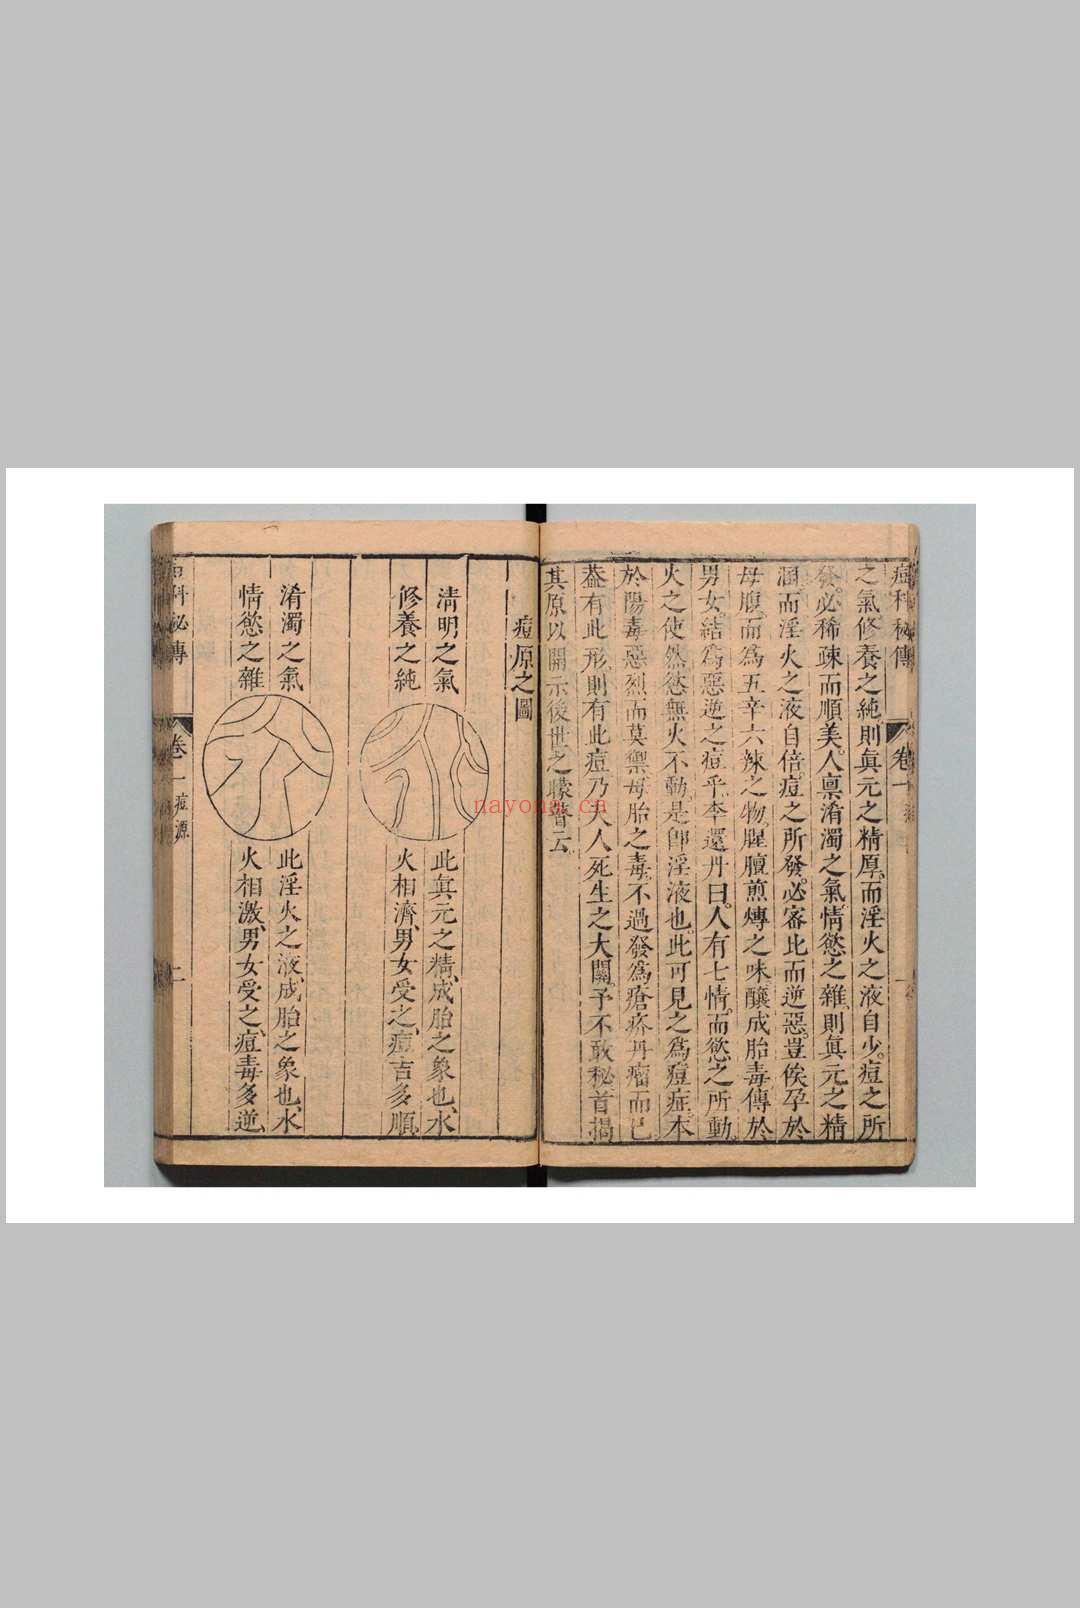 痘科秘傳 卷一
之氣修養之純則眞元之精厚而淫火之液自少痘之所
發必稀疎而順美人禀淆濁之氣情慾之雜則眞元之精
涵而淫火之液自倍痘之所發必審此而逆惡豈俟孕於
母腹而爲五辛六辣之物腥膻煎煿之味釀成胎毒傳於
男女結爲惡逆之痘乎李還丹曰人有七情而慾之所動
火之使然慾無火不動是卽淫液也此可見之爲痘症本
於陽毒惡烈而莫禦母胎之毒不過發爲瘡疥丹瘤而已
葢有此形則有此痘乃夫人死生之大關予不敢秘首揭
其原以開示後世之矇瞽云
痘原之圖
清明之氣
修養之純
此眞元之精成胎之象也水
火相濟男女受之痘吉多順
淆濁之氣
情慾之雜
此淫火之液成胎之象也水
火相激男女受之痘毒多逆
科秘傳 卷一 痘源 二
nayona.ca